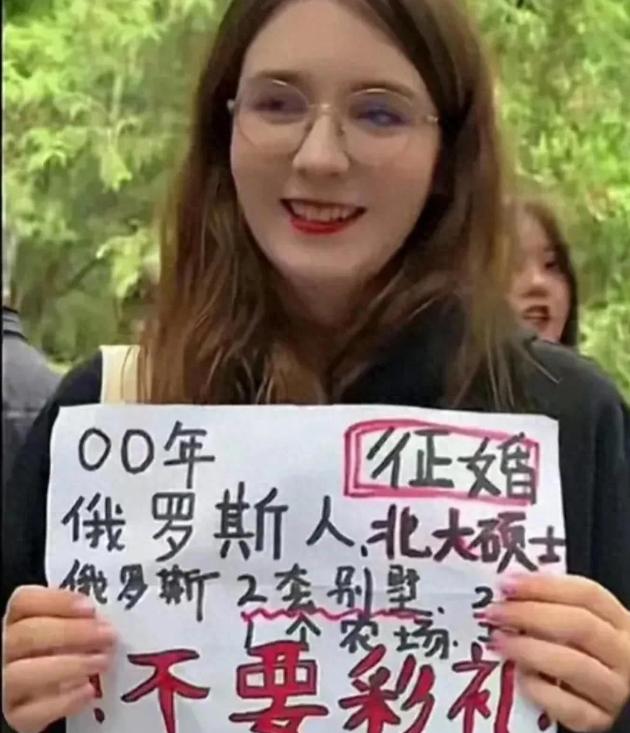 00年 征婚
俄罗斯人、北大硕士
俄罗斯 2套别墅、2
1个农场.
!不要彩礼!